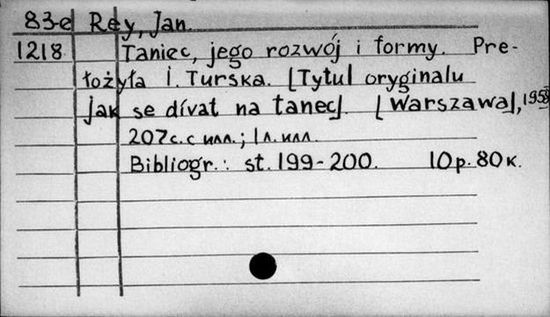 83-е Rey, Jan.
1218 Taniec, jego rozwój i formy. Pre-
łożyła I. Turska. [Tytul oryginalu
jak se dívat na tanec]. [Warszawa],
207с. с илл.; 1л. илл
Bibliogr.: st. 199-200. 10р. 80к.